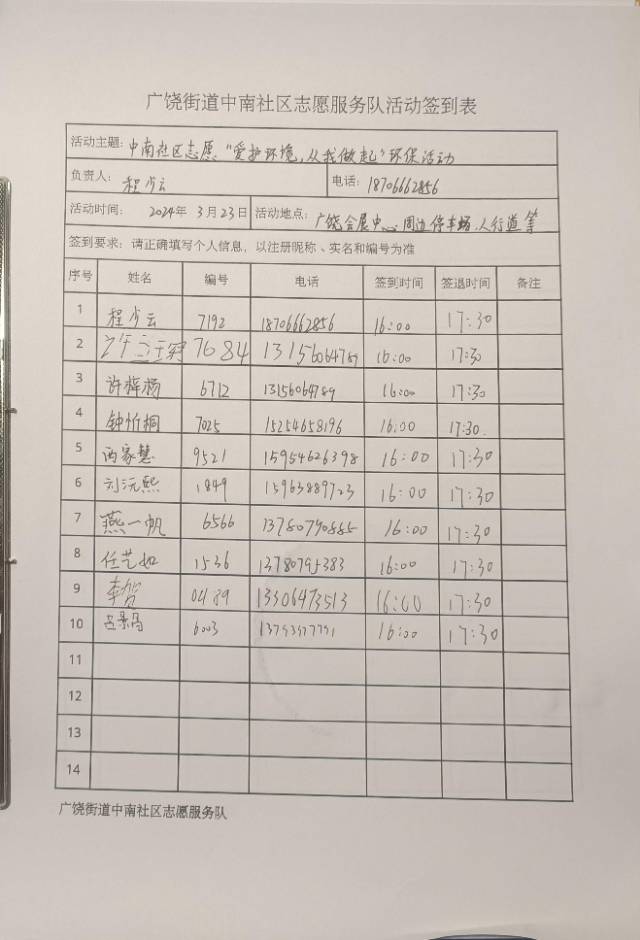 广饶街道中南社区志愿服务队活动签到表
活动主题: 中南社区志愿“爱护环境,从我做起”环保活动
负责人: 程少云 电话: 18706662856
活动时间: 2024年 3月23日 活动地点: 广饶会展中心周边停车场、人行道等
签到要求: 请正确填写个人信息,以注册昵称、实名和编号为准
序号 姓名 编号 电话 签到时间 签退时间 备注
1 程少云 7192 18706662856 16:00 17:30
2 7684 13156064789 16:00 17:30
3 许梓杨 6712 13156064789 16:00 17:30
4 钟忻桐 7025 15254658196 16:00 17:30
5 西家慧 9521 15954626398 16:00 17:30
6 刘沅熙 1849 15963889723 16:00 17:30
7 燕一帆 6566 13780790885 16:00 17:30
8 任艺如 1536 13780795383 16:00 17:30
9 李贺 0489 13306473513 16:00 17:30
10 6003 16:00 17:30
11
12
13
14
广饶街道中南社区志愿服务队